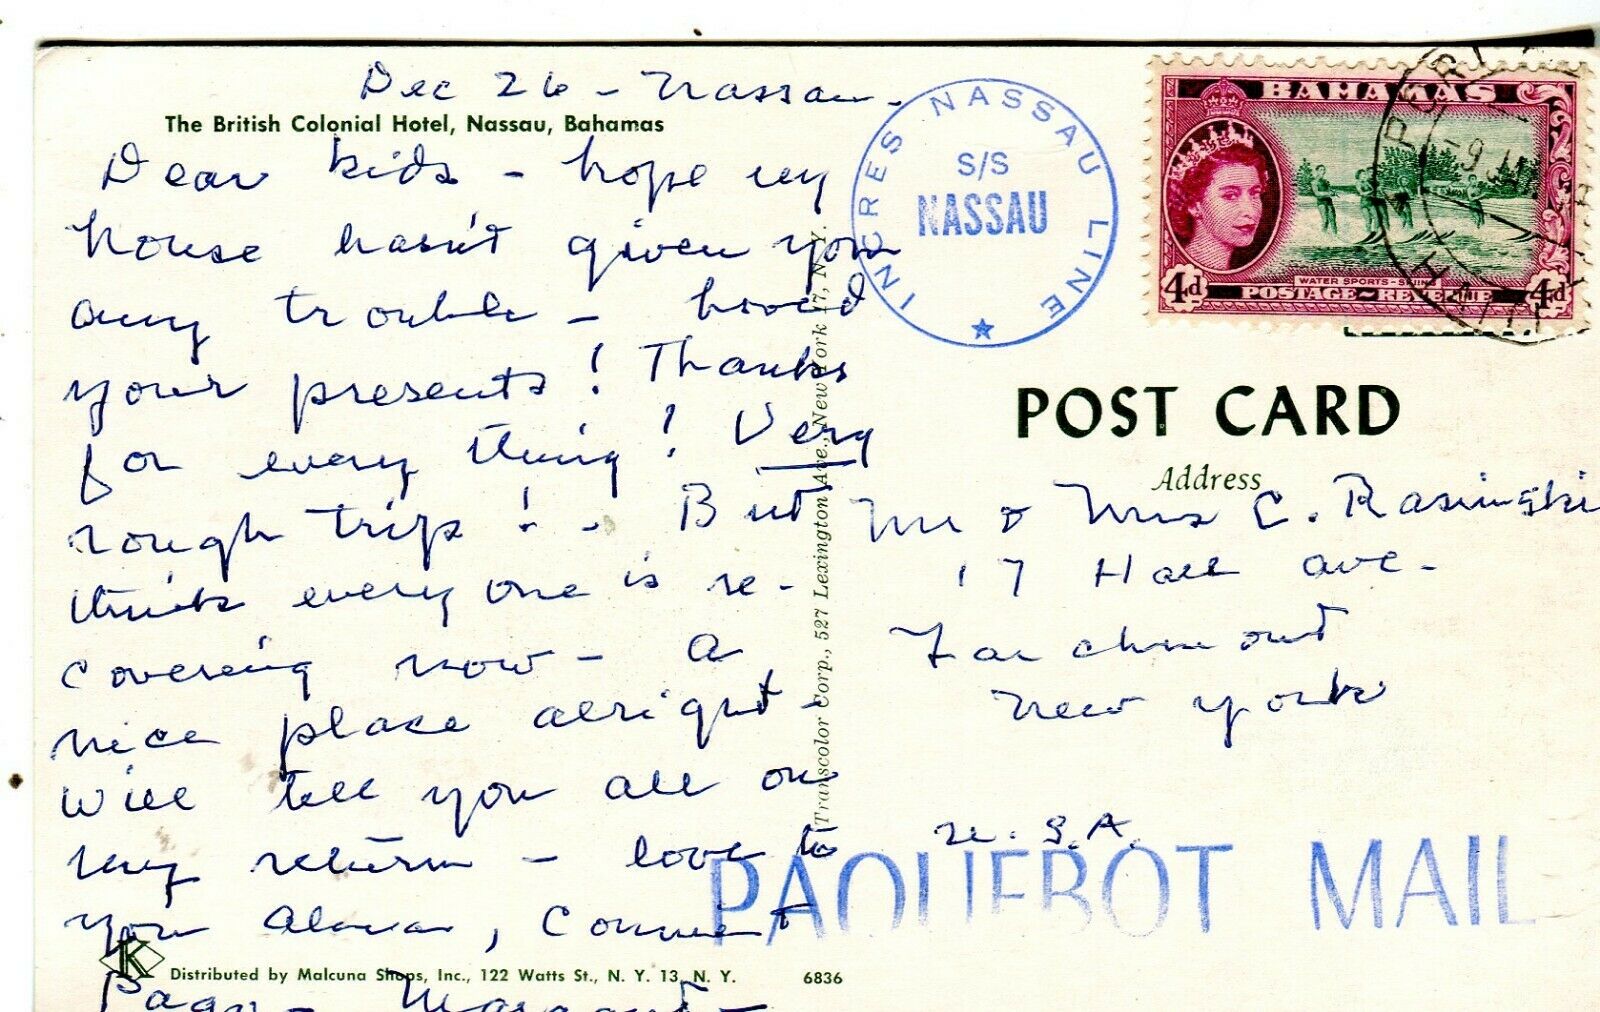 Dec 26 - Nassau -
The British Colonial Hotel, Nassau, Bahamas
Dear kids - hope my
house hasn't given you
any trouble - loved
your presents! Thanks
for every thing! Very
rough trip! - But
think everyone is re-
covering now - A
nice place alright -
Will tell you all on
my return - love to
you
Distributed by Malcuna Shops, Inc., 122 Watts St., N. Y. 13, N. Y. 6836
K
Transcolor Corp., 527 Lexington Ave., New York 17, N. Y.
INCRES NASSAU LINE
S/S
NASSAU
BAHAMAS
WATER SPORTS - SKIING
4d POSTAGE - REVENUE 4d
POST CARD
Address
Mr & Mrs C. Rasinski
17 Hall Ave -
Larchmont
New York
U.S.A.
PAQUEBOT MAIL